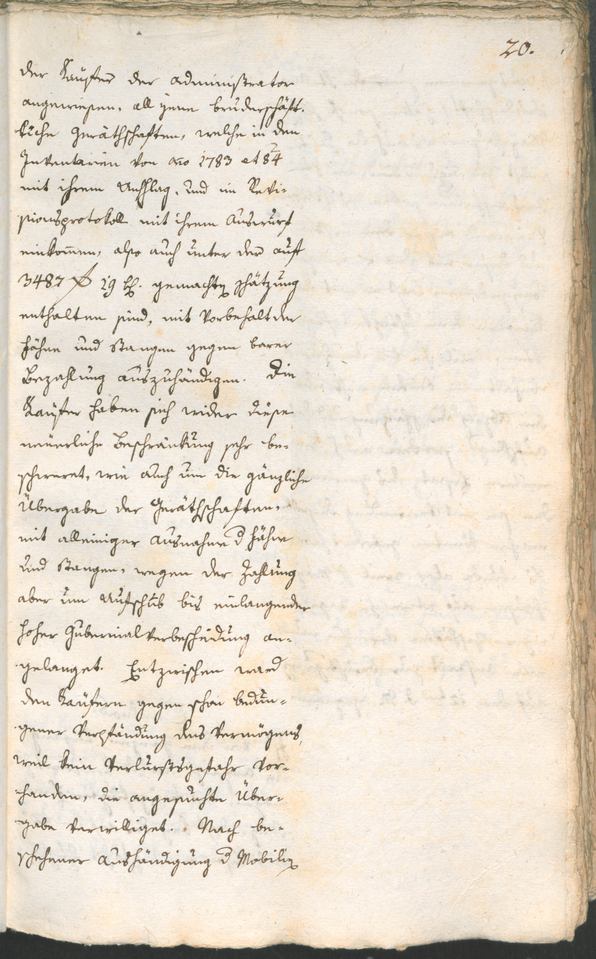 20.
der Käufer der Administrator
angewiesen, all jene bruderschäft-
liche Geräthschaften, welche in den
Inventarien von ao 1783 et 84
mit ihrem Anschlag, und im Revi-
sionsprotokoll mit ihrem Auswurf
einkom̄en, also auch unter der auf
3487 f 19 x. gemachten Schätzung
enthalten sind, mit Vorbehalt der
Fähne und Stangen gegen barer
Bezahlung auszuhändigen. Die
Käufer haben sich wider diese
neuerliche Beschränkung sehr be-
schweret, wie auch um die gänzliche
Übergabe der Geräthschaften,
mit alleiniger Ausnahme d Fähne
und Stangen, wegen der Zahlung
aber um Aufschub bis einlangender
hoher Gubernialverbescheidung an-
gelanget. Entzwischen ward
den Käufern gegen schon bedun-
gener Verpfändung des Vermögens,
weil kein Verlurstsgefahr vor-
handen, die angesuchte Über-
gabe verwilliget. Nach be-
schehener Aushändigung d Mobilien